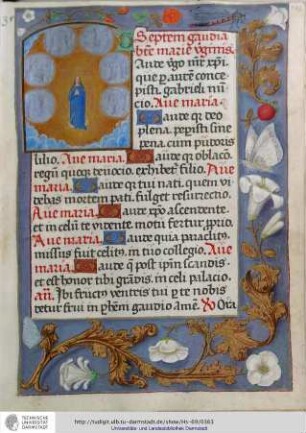 Septem gaudia
bt̄e marie v̄ginis.
Aude v̄go mr̄ xp̄i
que p̄ aurem conce
pisti. gabrieli nū
cio. Ave maria.
aude q̄ deo
plena. peperisti sine
pena. cum pudoris
lilio. Ave maria. aude q̄ oblacō.
regū quoq̄ devocio. exhibet̄ filio. Ave
maria. aude q̄ tui nati. quem vi
debas mortem pati. fulget resurrectio.
Ave maria. aude xp̄o ascendente.
et in celū te vidente. motu fertur p̄prio.
Ave maria. aude quia paraclitꝰ.
missus fuit celitꝰ. in tuo collegio. Ave
maria. aude q̄ post ip̄m scandis.
et est honor tibi grādis. in celi palacio.
añ. Ibi fructꝰ ventris tui p̄ te nobis
detur frui in p̄hēm gaudio amē. Ora
TECHNISCHE
UNIVERSITÄT
DARMSTADT
http://tudigit.ulb.tu-darmstadt.de/show/Hs-69/0361
Universitäts- und Landesbibliothek Darmstadt